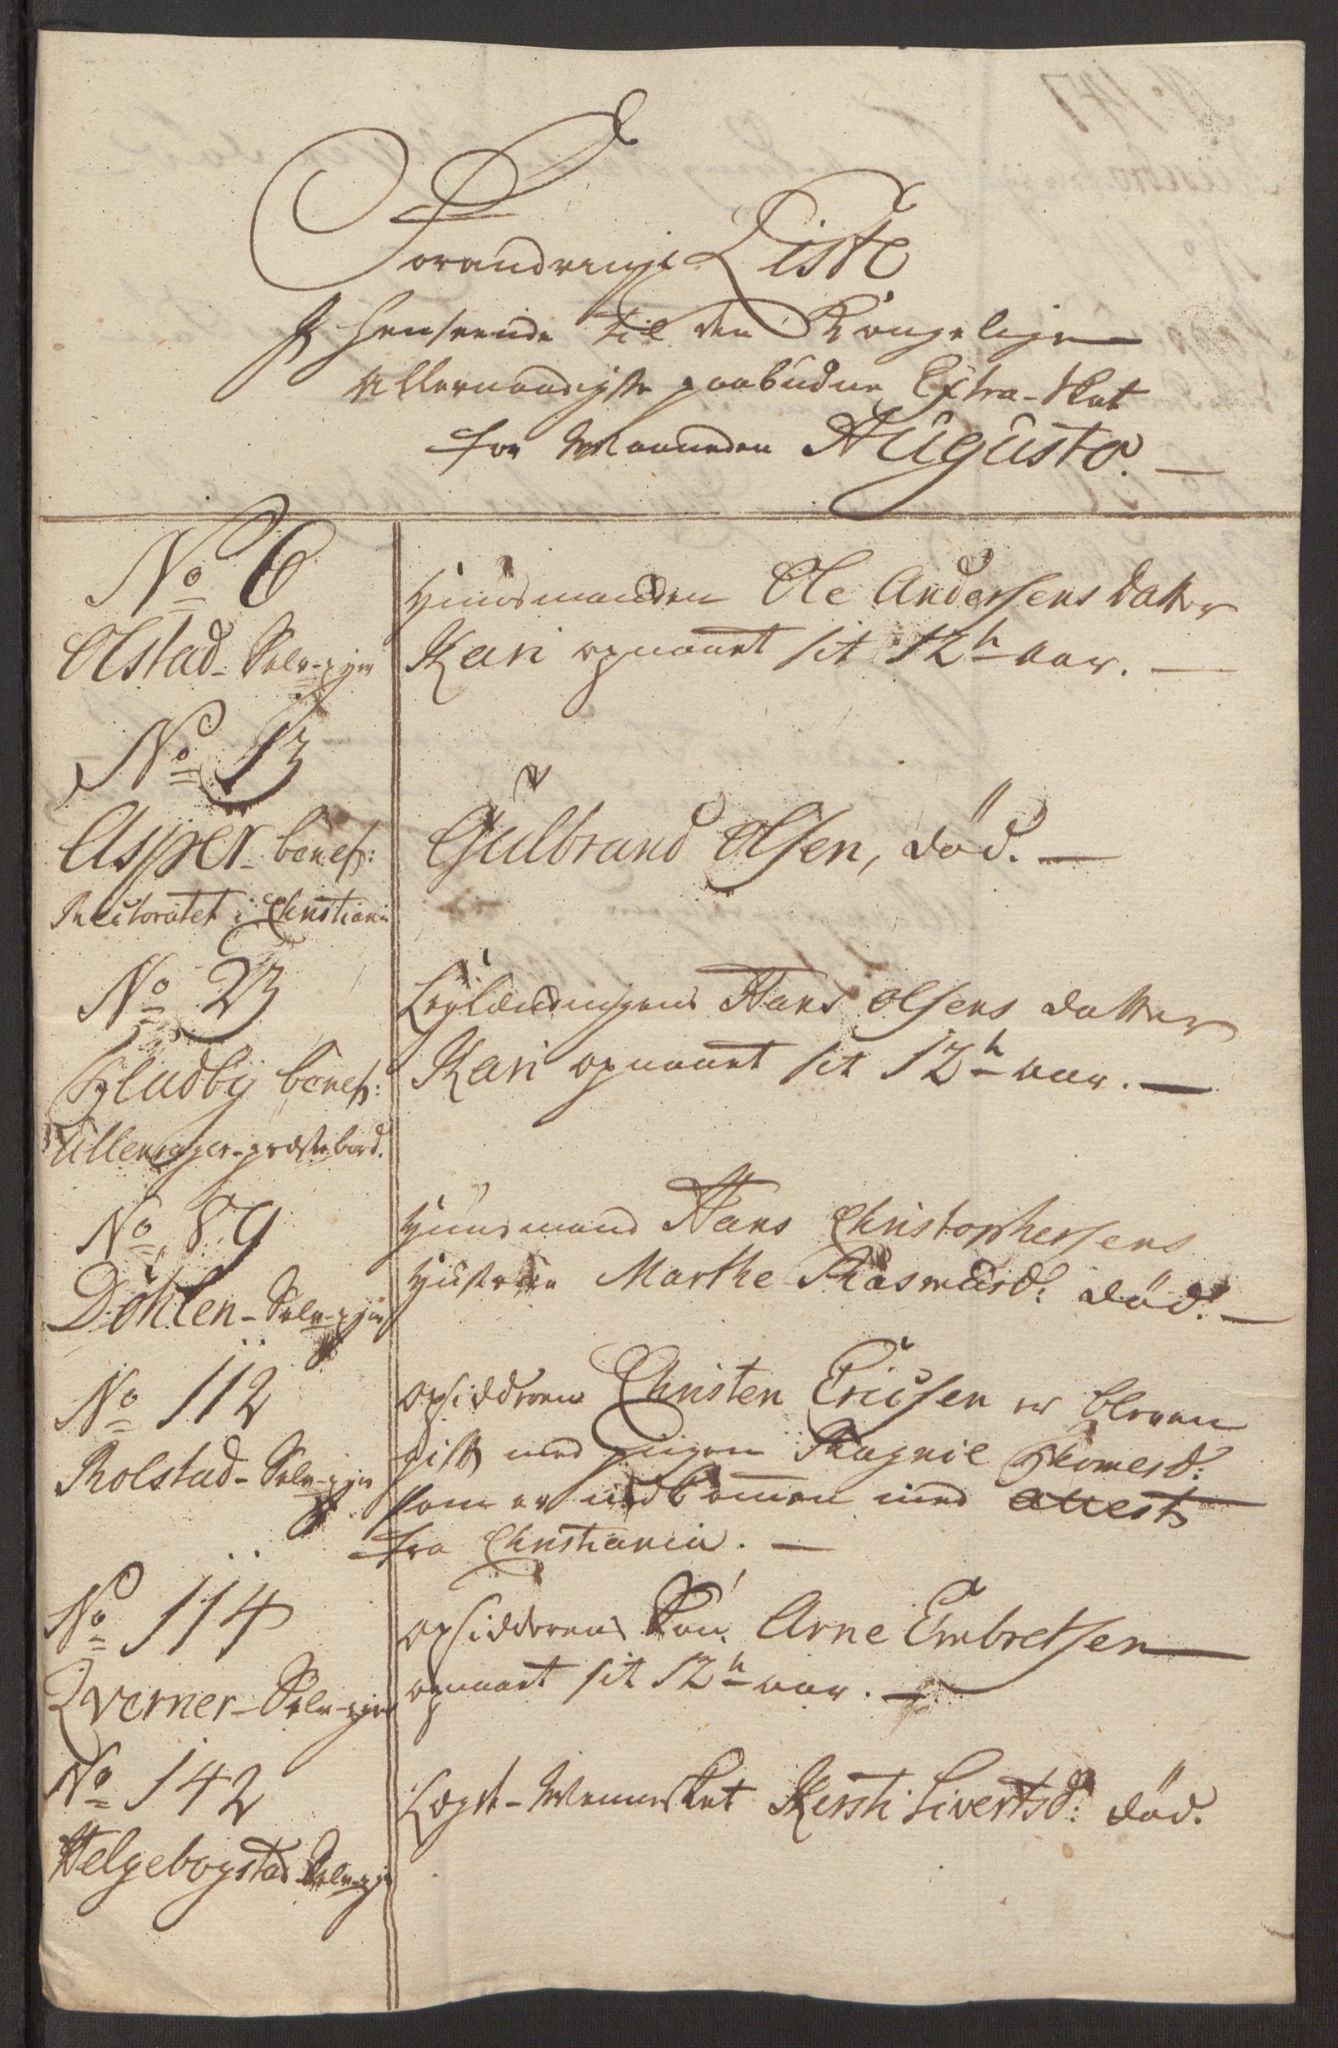 Forandrings Liste
I henseende til den Kongelige
Allernaadigste paabudne Extra-Skat
for Maaneden Augusto.
No 6
Olstad - Selv-ejer
Huusmanden Ole Andersens datter
Kari opnaaet sit 12te aar.
No 13
Asper benef:
Rectoratet i Christiania
Gulbrand Olsen, død.
No 23
Gladby benef:
Ullensager-præstebord.
Leylændingens Hans Olsens datter
Kari opnaaet sit 12te aar.
No 89
Døhlen - Selv-ejer
Huusmand Hans Christophersens
Hustrue Marthe Rasmusd: død.
No 112
Rolstad - Selv-ejer
opsidderen Christen Ericsen er bleven
gift med pigen Ragnil Thomesd:
som er nedkommen med attest
fra Christiania.
No 114
Qverner - Selv-ejer
opsidderens Søn, Arne Embretsen
opnaaet sit 12te aar.
No 142
Helgebogstad Selv-ejer
Lægds-Mennesket Kersti Sivertsd: død.